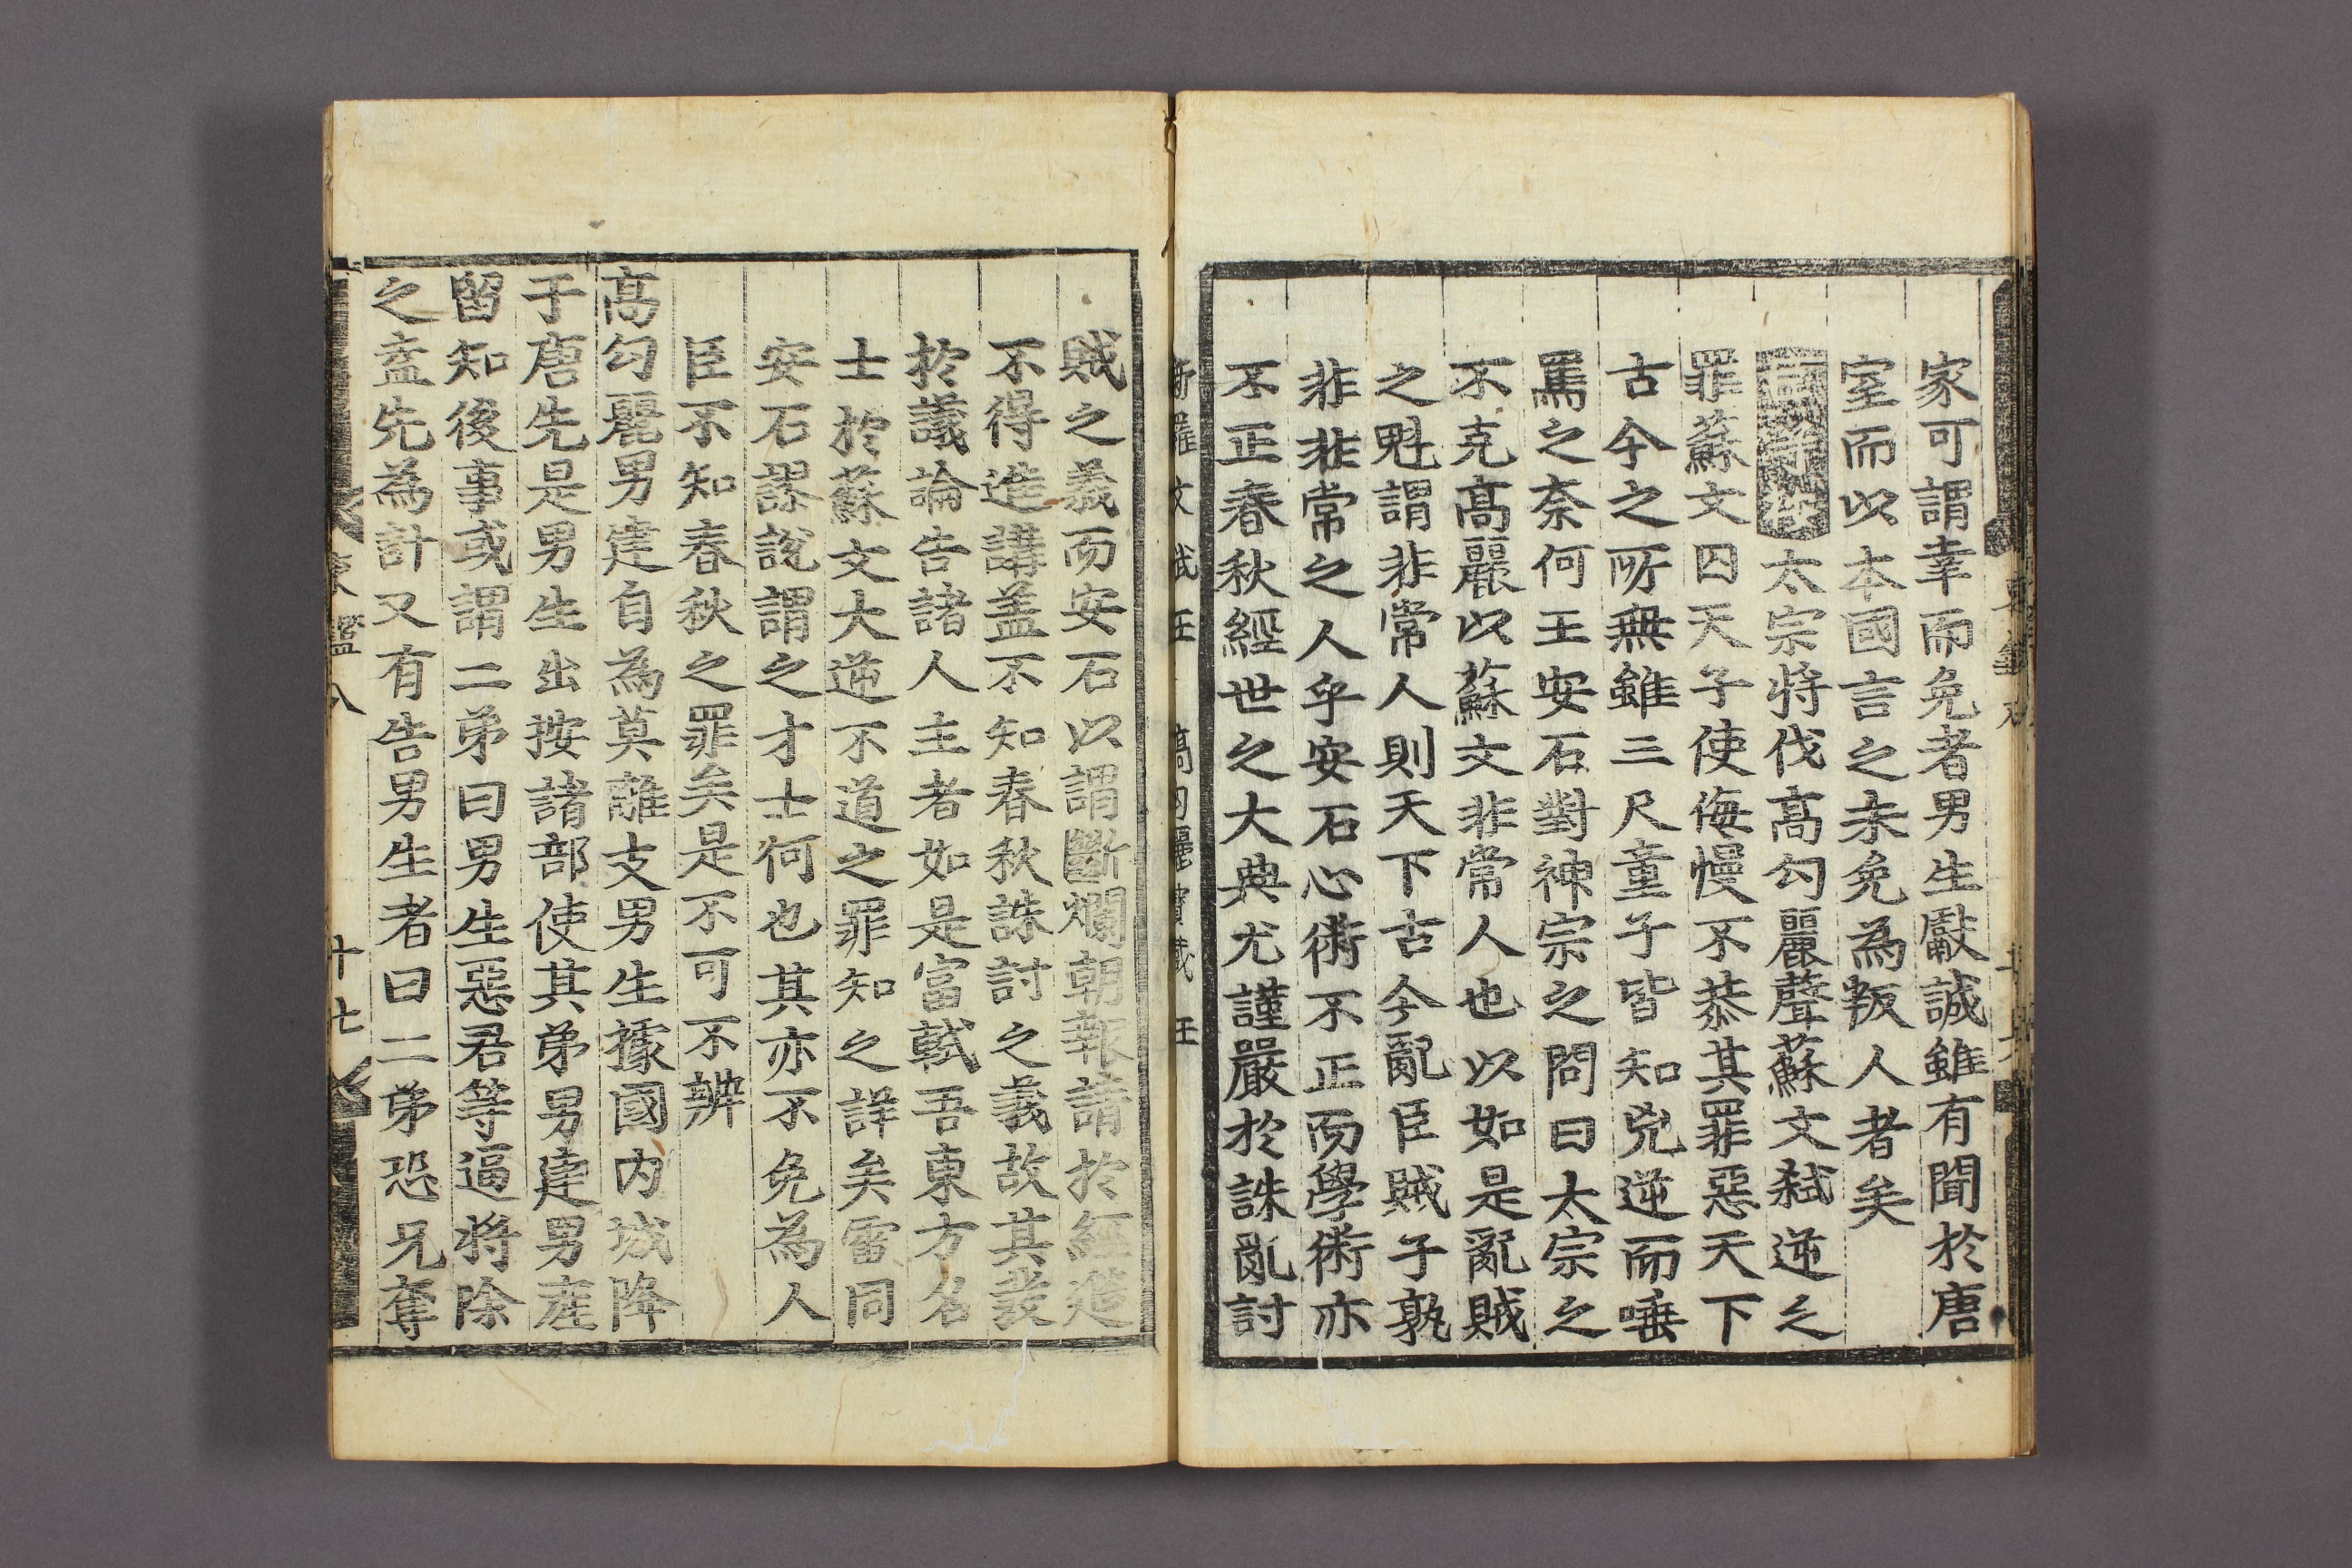 家可謂幸而免者男生獻誠雖有聞於唐
室而以本國言之未免為叛人者矣
太宗將伐高勾麗聲蘇文弑逆之
罪蘇文囚天子使侮慢不恭其罪惡天下
古今之所無雖三尺童子皆知兇逆而唾
罵之奈何王安石對神宗之問曰太宗之
不克高麗以蘇文非常人也以如是亂賊
之魁謂非常人則天下古今亂臣賊子孰
非非常之人乎安石心術不正而學術亦
不正春秋經世之大典尤謹嚴於誅亂討
新羅文武王 高勾麗寶藏王
賊之義而安石以謂斷爛朝報請於經筵
不得進講盖不知春秋誅討之義故其發
於議論告諸人主者如是富軾吾東方名
士於蘇文大逆不道之罪知之詳矣雷同
安石謬說謂之才士何也其亦不免為人
臣不知春秋之罪矣是不可不辨
高勾麗男建自為莫離支男生據國内城降
于唐先是男生出按諸部使其弟男建男產
留知後事或謂二弟曰男生惡君等逼將除
之盍先為計又有告男生者曰二弟恐兄奪
東鑑八
十七